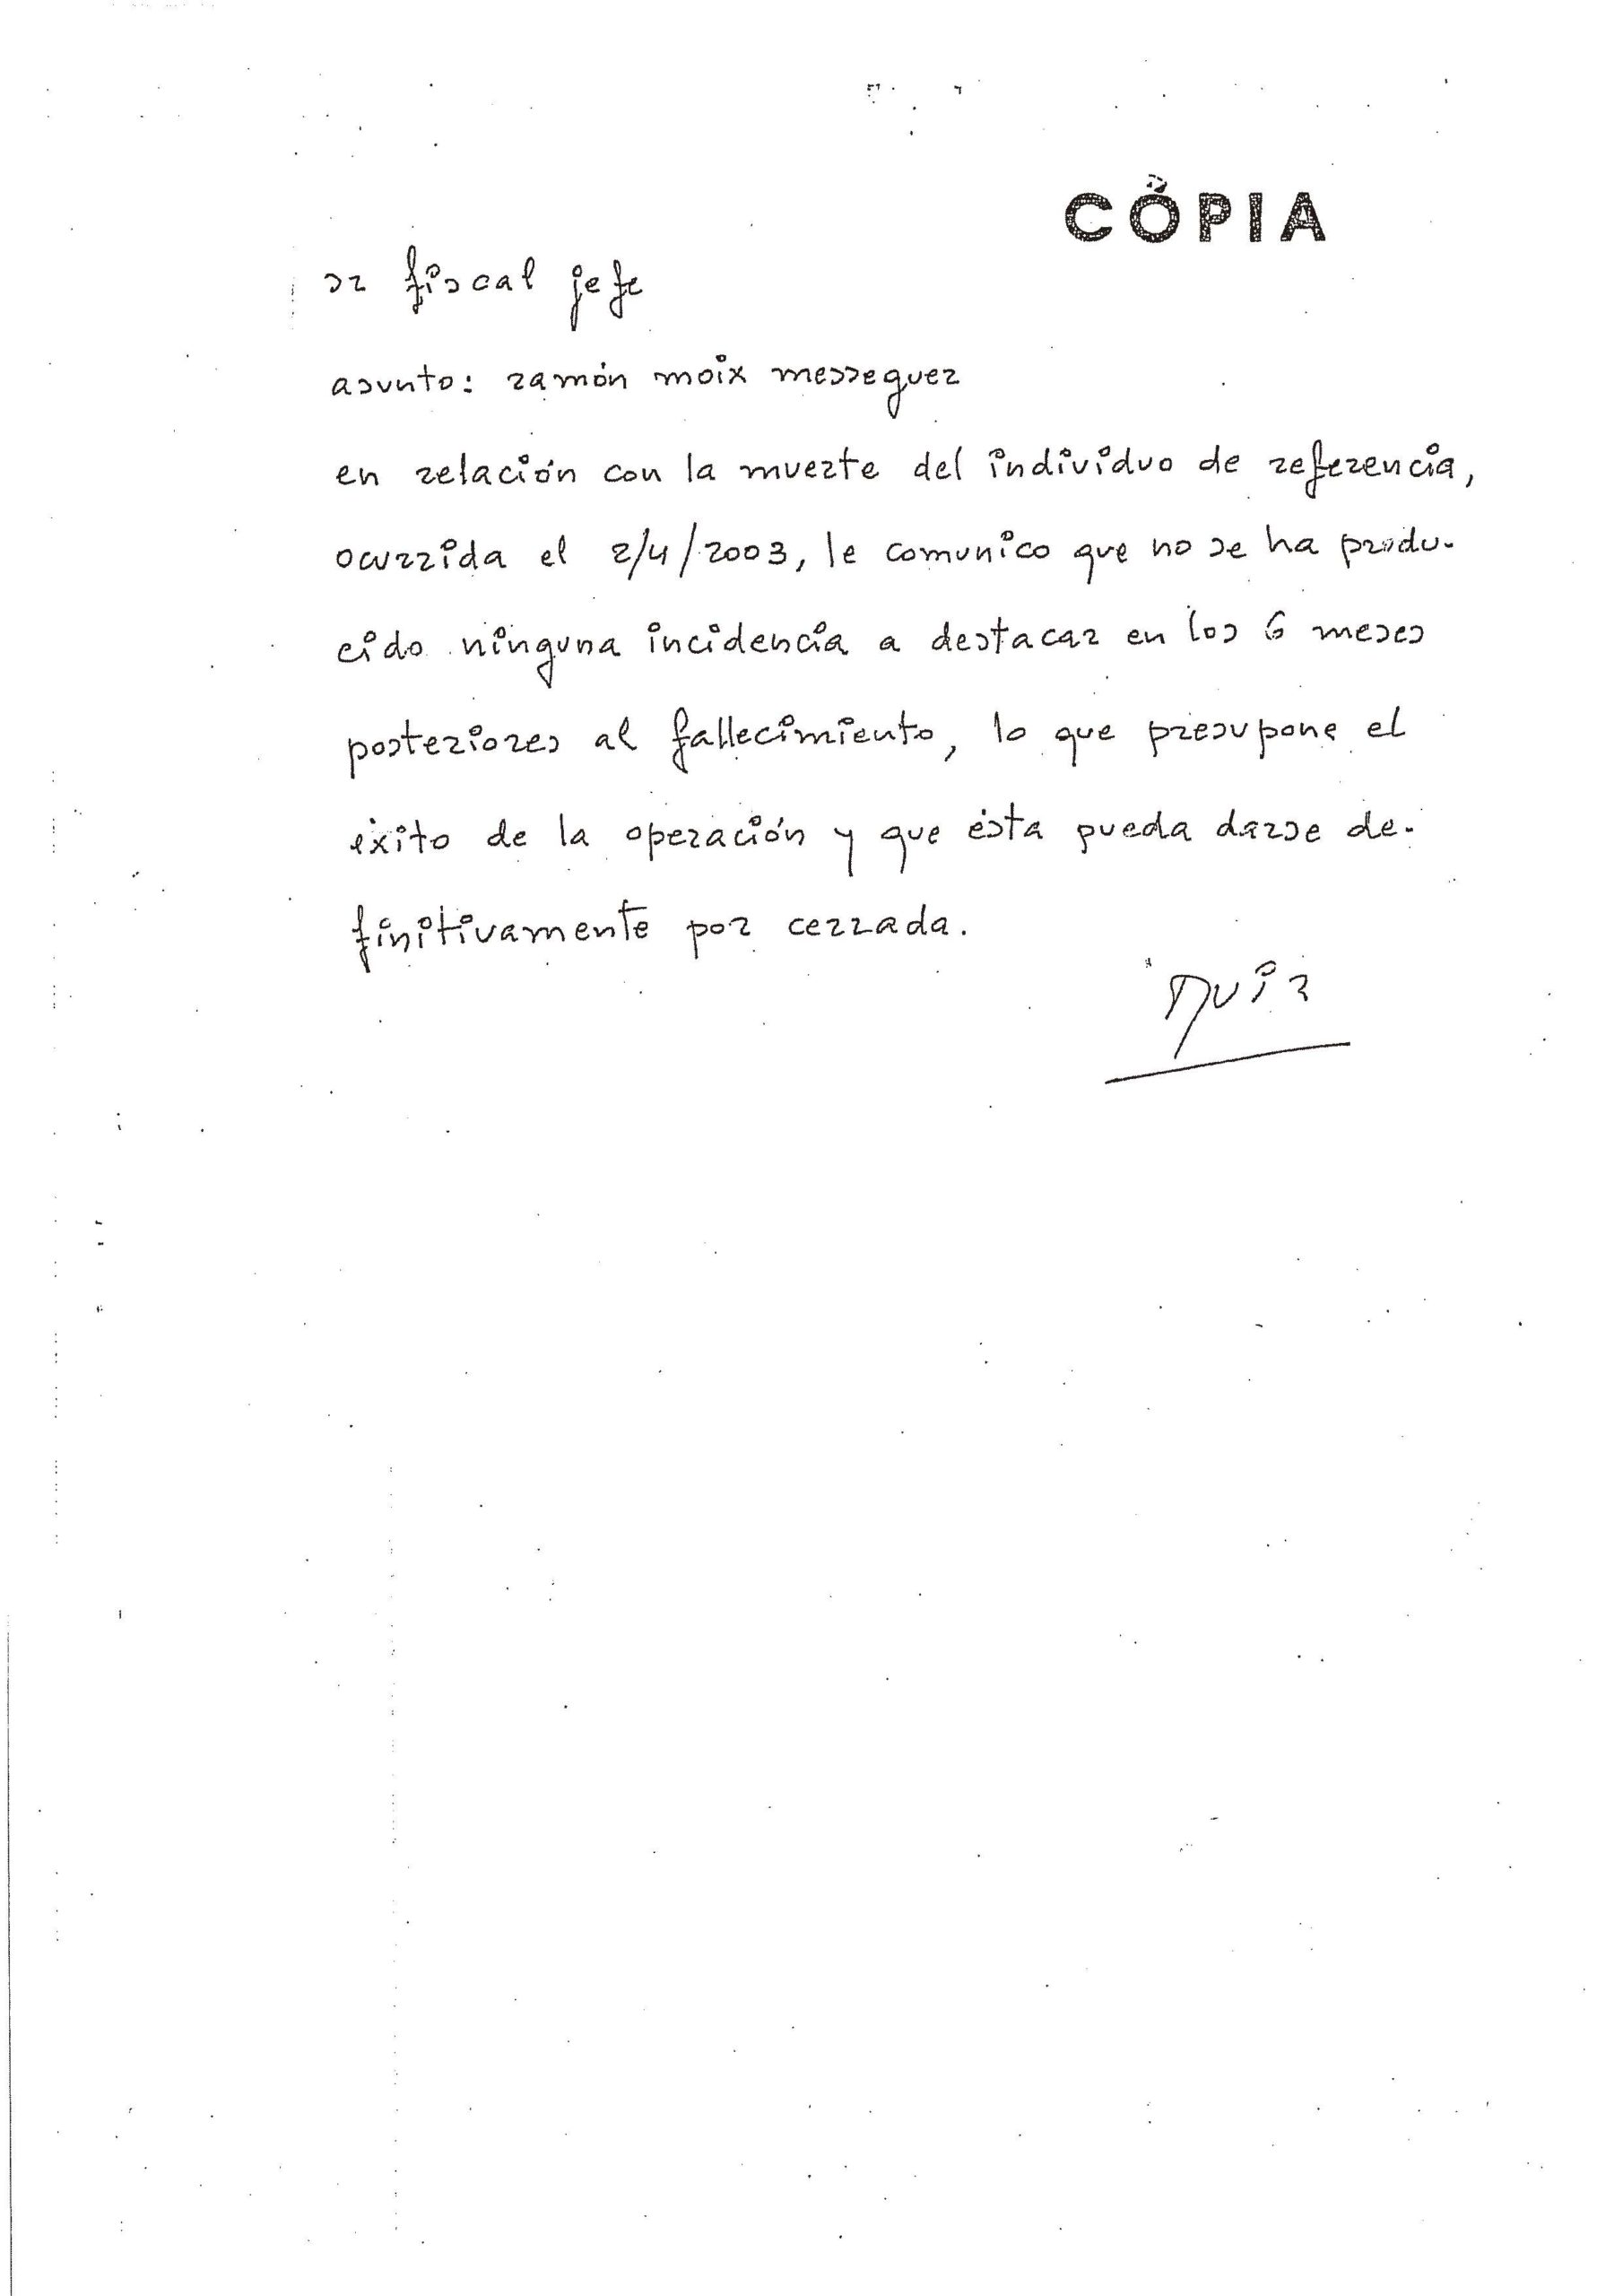 CÒPIA
sr fiscal jefe
asunto: ramón moix messeguer
en relación con la muerte del individuo de referencia,
ocurrida el 2/4/2003, le comunico que no se ha produ-
cido ninguna incidencia a destacar en los 6 meses
posteriores al fallecimiento, lo que presupone el
éxito de la operación y que ésta pueda darse de-
finitivamente por cerrada.